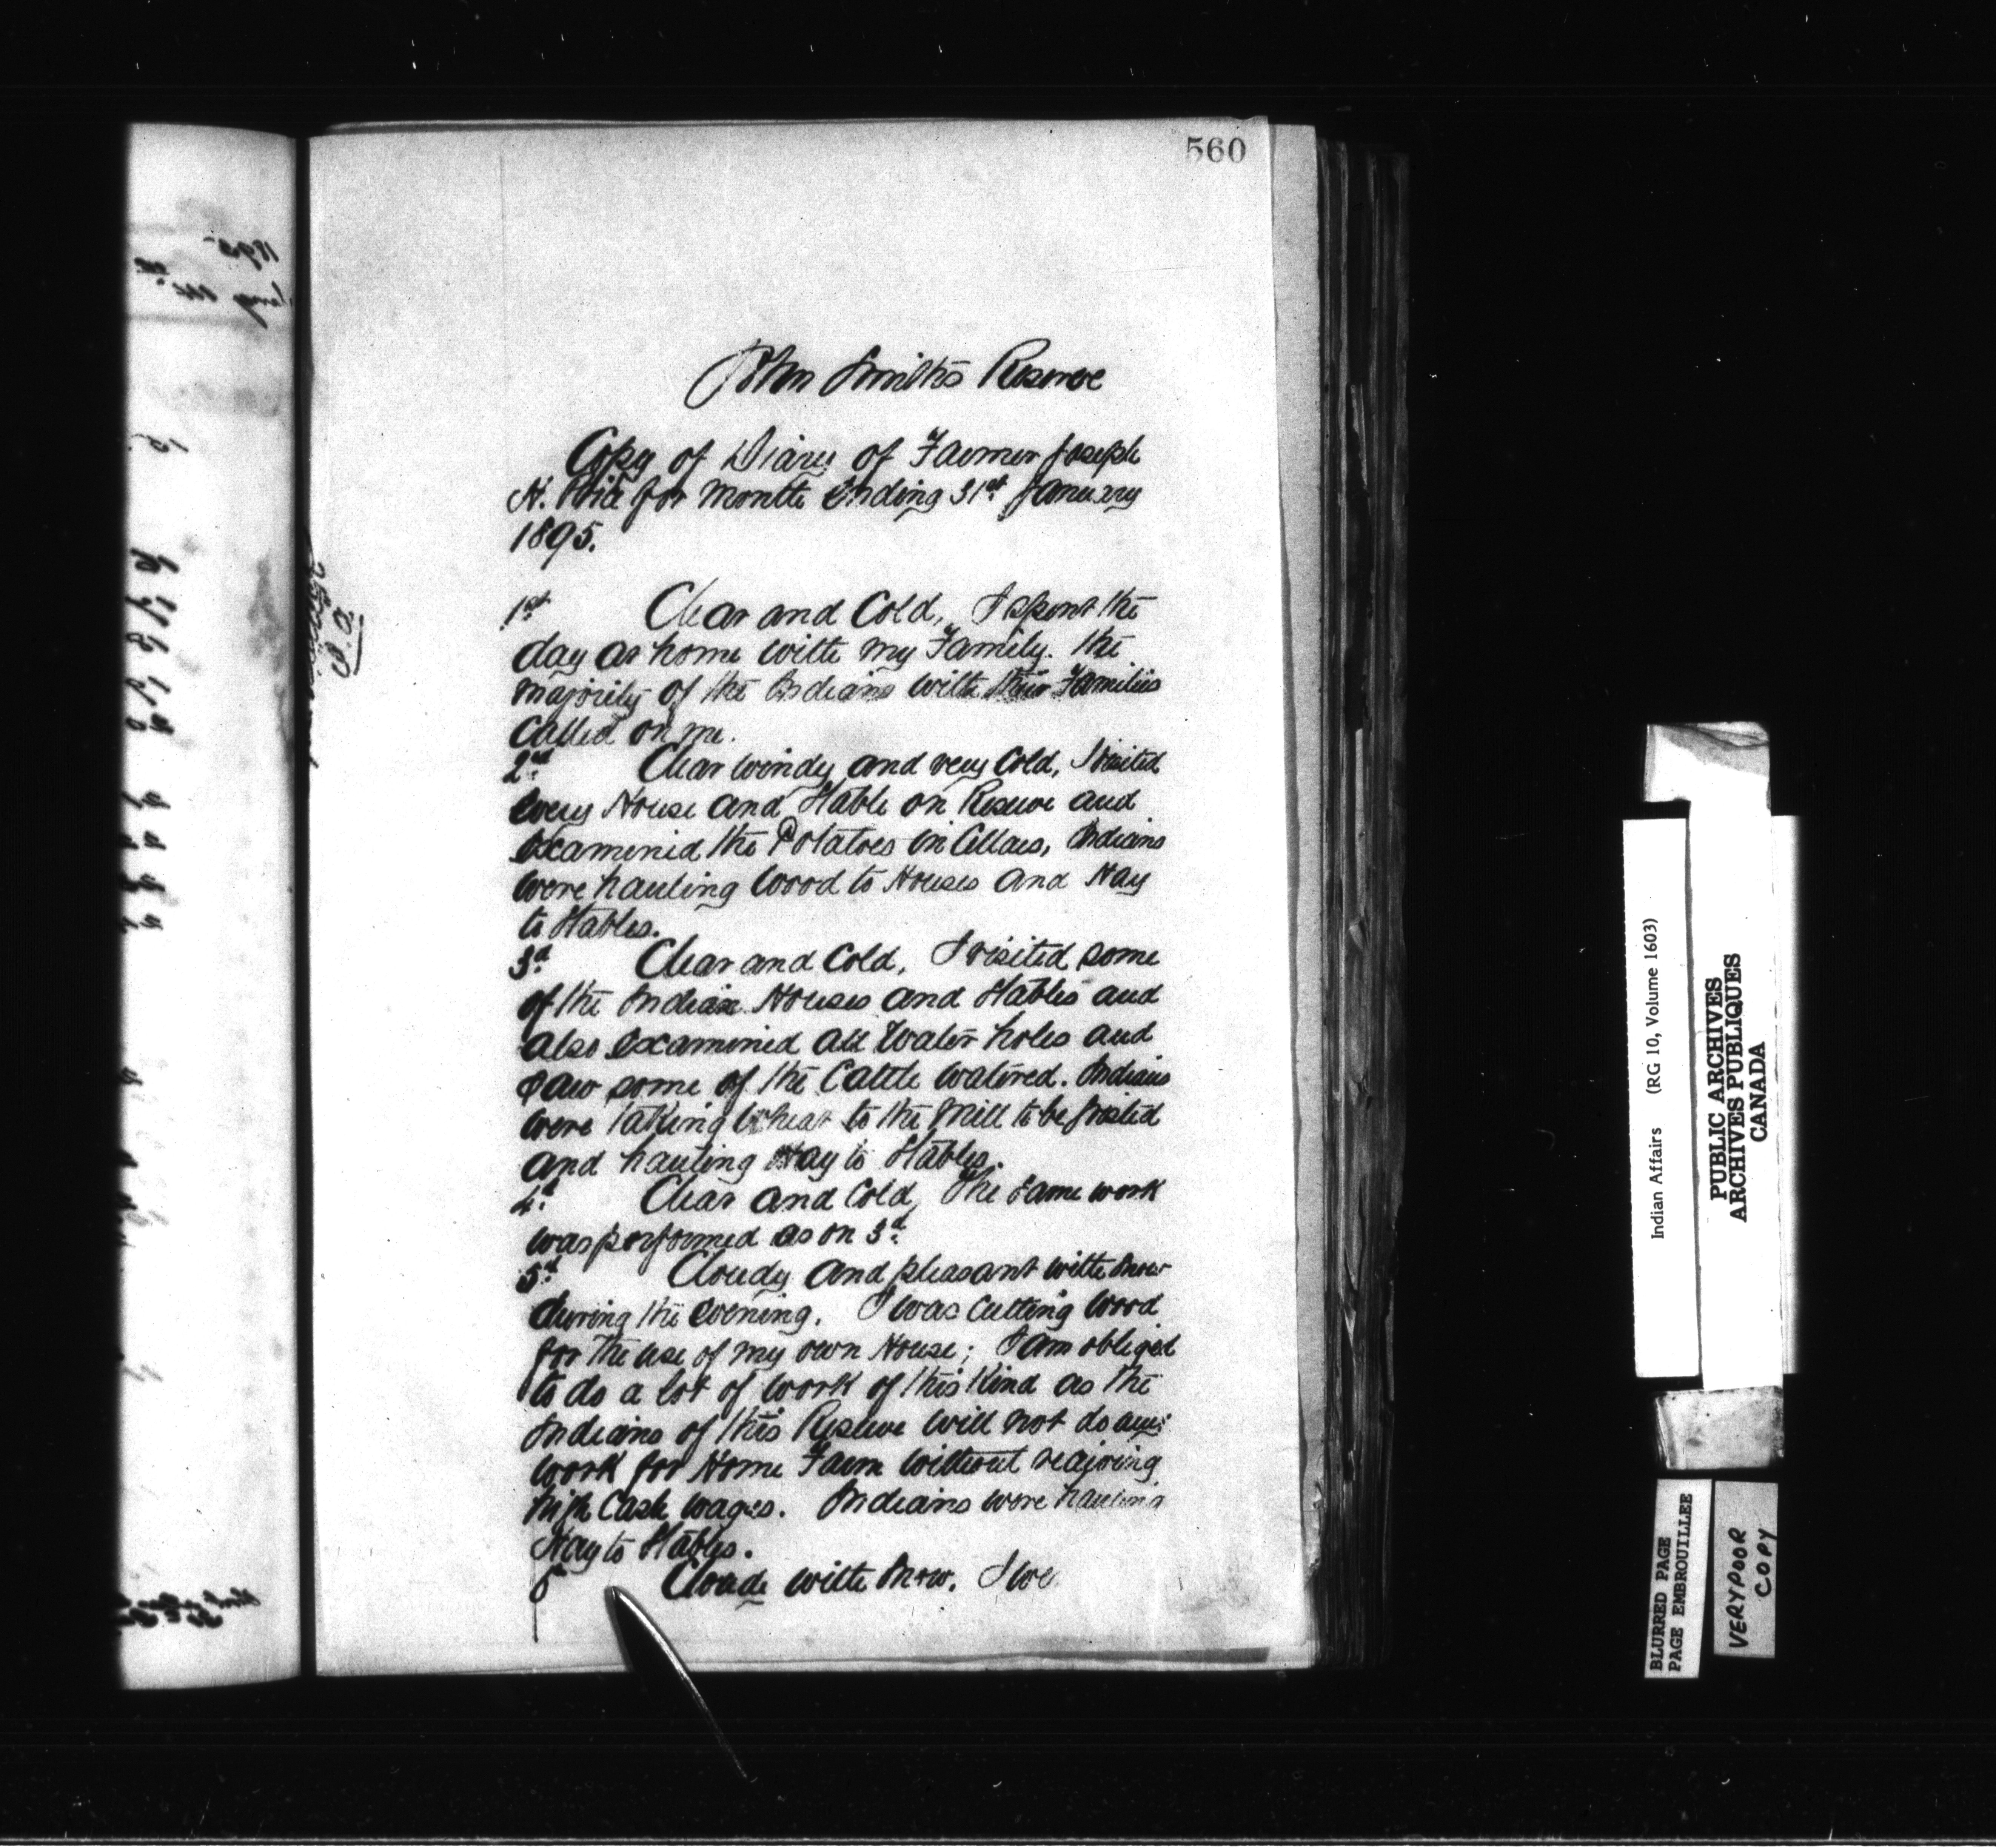 560
John Smith's Reserve
Copy of Diary of Farmer Joseph
H. Price for Month Ending 31st January
1895.
1st Clear and Cold, I spent the
day at home with my Family. The
majority of the Indians with their Families
Called on me.
2d Clear windy and very Cold, I visited
every House and Stable on Reserve and
Examined the Potatoes in Cellars, Indians
were hauling wood to Houses and Hay
to Stables.
3d Clear and Cold, I visited some
of the Indian Houses and Stables and
also Examined all Water holes and
saw some of the Cattle watered. Indians
were taking Wheat to the Mill to be Gristed
and hauling Hay to Stables.
4th Clear and Cold, The same work
was performed as on 3d.
5th Cloudy and pleasant with Snow
during the evening. I was cutting wood
for the use of my own House; I am obliged
to do a lot of work of this Kind as the
Indians of this Reserve will not do any
work for Home Farm without
high Cash wages. Indians were hauling
Hay to Stables.
with Snow. I
Indian Affairs (RG 10, Volume 1603)
PUBLIC ARCHIVES
ARCHIVES PUBLIQUES
CANADA
BLURRED PAGE
PAGE EMBROUILLEE
VERY POOR
COPY